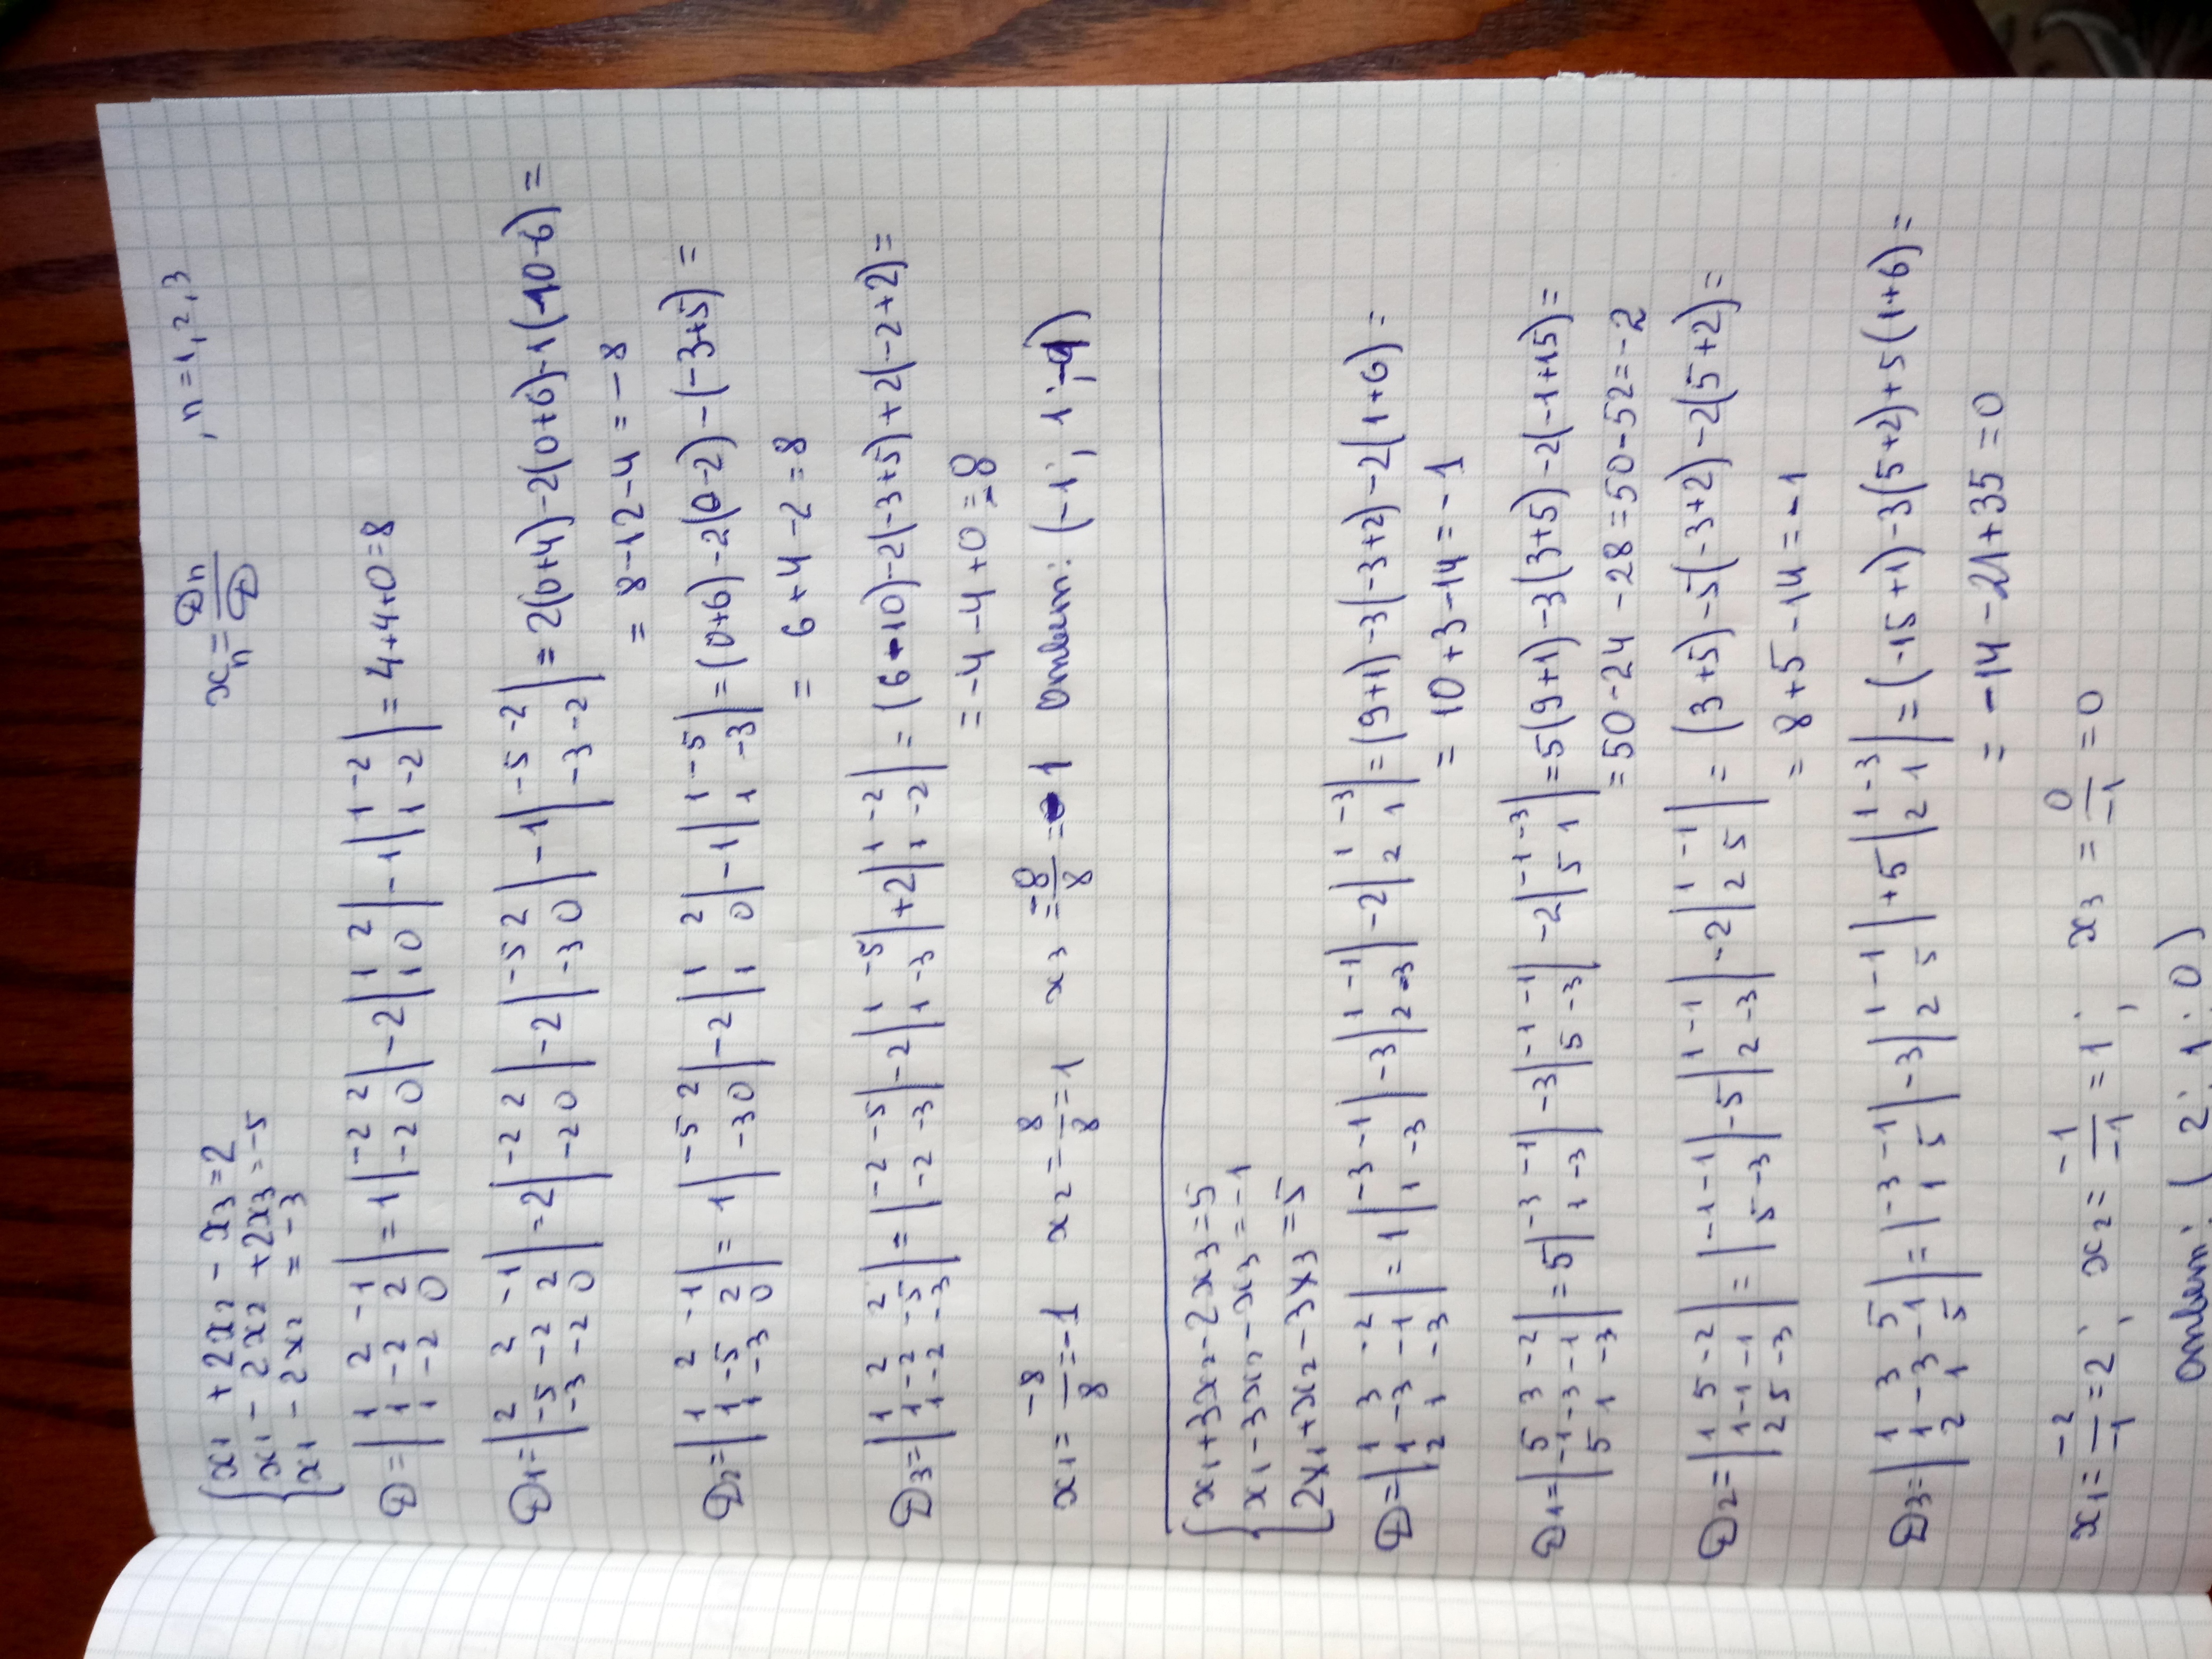 xₙ = Dₙ/D , n = 1, 2, 3
{ x₁ + 2x₂ - x₃ = 2
x₁ - 2x₂ + 2x₃ = -5
x₁ - 2x₂ = -3
D = |1 2 -1; 1 -2 2; 1 -2 0| = 1|-2 2; -2 0| - 2|1 2; 1 0| - 1|1 -2; 1 -2| = 4+4+0=8
D₁ = |2 2 -1; -5 -2 2; -3 -2 0| = 2|-2 2; -2 0| - 2|-5 2; -3 0| - 1|-5 -2; -3 -2| = 2(0+4) - 2(0+6) - 1(10-6) =
= 8 - 12 - 4 = -8
D₂ = |1 2 -1; 1 -5 2; 1 -3 0| = 1|-5 2; -3 0| - 2|1 2; 1 0| - 1|1 -5; 1 -3| = (0+6) - 2(0-2) - (-3+5) =
= 6 + 4 - 2 = 8
D₃ = |1 2 2; 1 -2 -5; 1 -2 -3| = |-2 -5; -2 -3| - 2|1 -5; 1 -3| + 2|1 -2; 1 -2| = (6-10) - 2(-3+5) + 2(-2+2) =
= -4 - 4 + 0 = -8
x₁ = -8/8 = -1 x₂ = 8/8 = 1 x₃ = -8/8 = -1 Ответ: (-1; 1; -1)
{ x₁ + 3x₂ - 2x₃ = 5
x₁ - 3x₂ - x₃ = -1
2x₁ + x₂ - 3x₃ = 5
D = |1 3 -2; 1 -3 -1; 2 1 -3| = 1|-3 -1; 1 -3| - 3|1 -1; 2 -3| - 2|1 -3; 2 1| = (9+1) - 3(-3+2) - 2(1+6) =
= 10 + 3 - 14 = -1
D₁ = |5 3 -2; -1 -3 -1; 5 1 -3| = 5|-3 -1; 1 -3| - 3|-1 -1; 5 -3| - 2|-1 -3; 5 1| = 5(9+1) - 3(3+5) - 2(-1+15) =
= 50 - 24 - 28 = 50 - 52 = -2
D₂ = |1 5 -2; 1 -1 -1; 2 5 -3| = |-1 -1; 5 -3| - 5|1 -1; 2 -3| - 2|1 -1; 2 5| = (3+5) - 5(-3+2) - 2(5+2) =
= 8 + 5 - 14 = -1
D₃ = |1 3 5; 1 -3 -1; 2 1 5| = |-3 -1; 1 5| - 3|1 -1; 2 5| + 5|1 -3; 2 1| = (-15+1) - 3(5+2) + 5(1+6) =
= -14 - 21 + 35 = 0
x₁ = -2/-1 = 2; x₂ = -1/-1 = 1; x₃ = 0/-1 = 0
Ответ: (2; 1; 0)